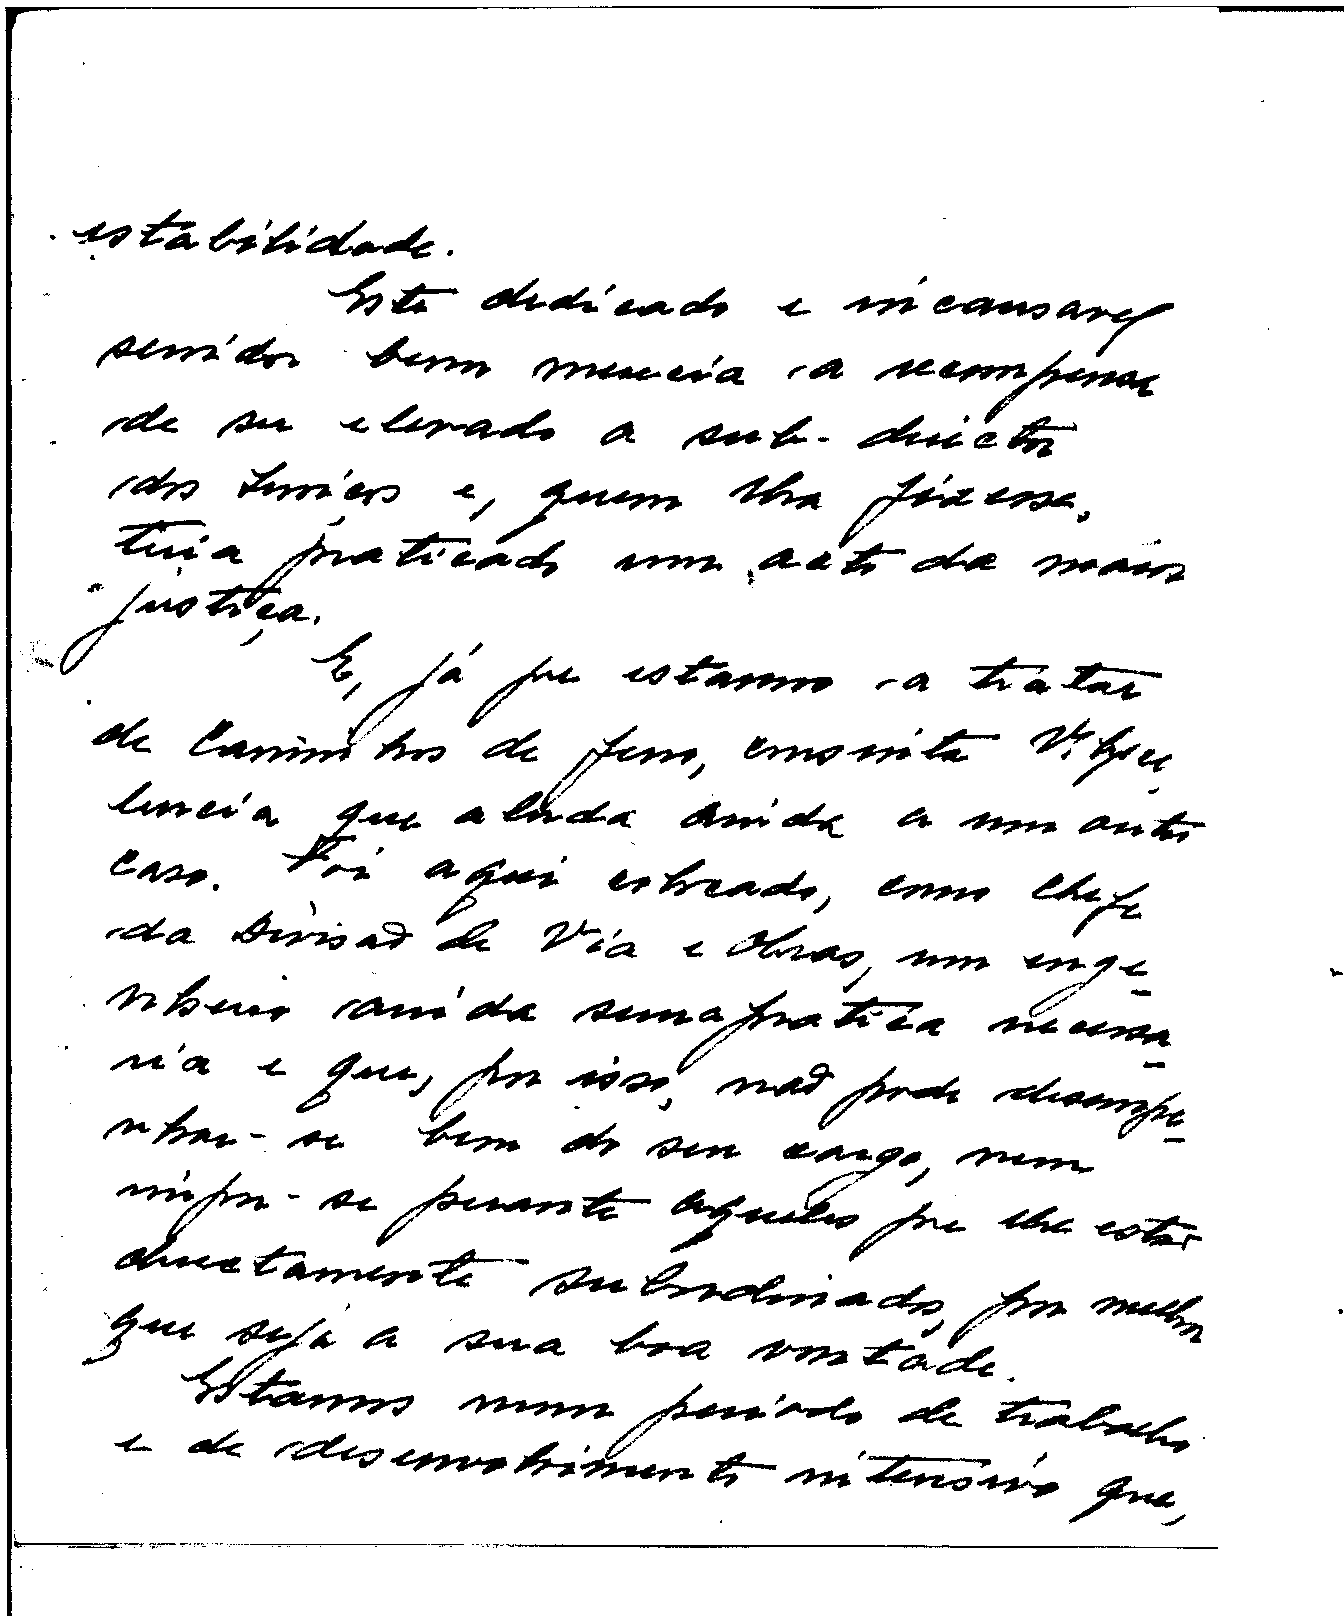 estabilidade.
Este dedicado e incansavel
servidor bem merecia a recompensa
de ser elevado a sub-director
dos Serviços e, quem lha fizesse,
teria praticado um acto da maior
justiça.
E, já que estamos a tratar
de Caminhos de ferro, consinta V.ª Exce-
lencia que aluda ainda a um outro
caso. Foi aqui colocado, como Chefe
da Divisaõ de Via e Obras, um enge-
nheiro ainda sem a pratica necessa-
ria e que, por isso, naõ pode desempe-
nhar-se bem do seu cargo, nem
impor-se perante aqueles que lhe estaõ
directamente subordinados, por melhor
que seja a sua boa vontade.
Estamos num periodo de trabalho
e de desenvolvimento intensivo que,